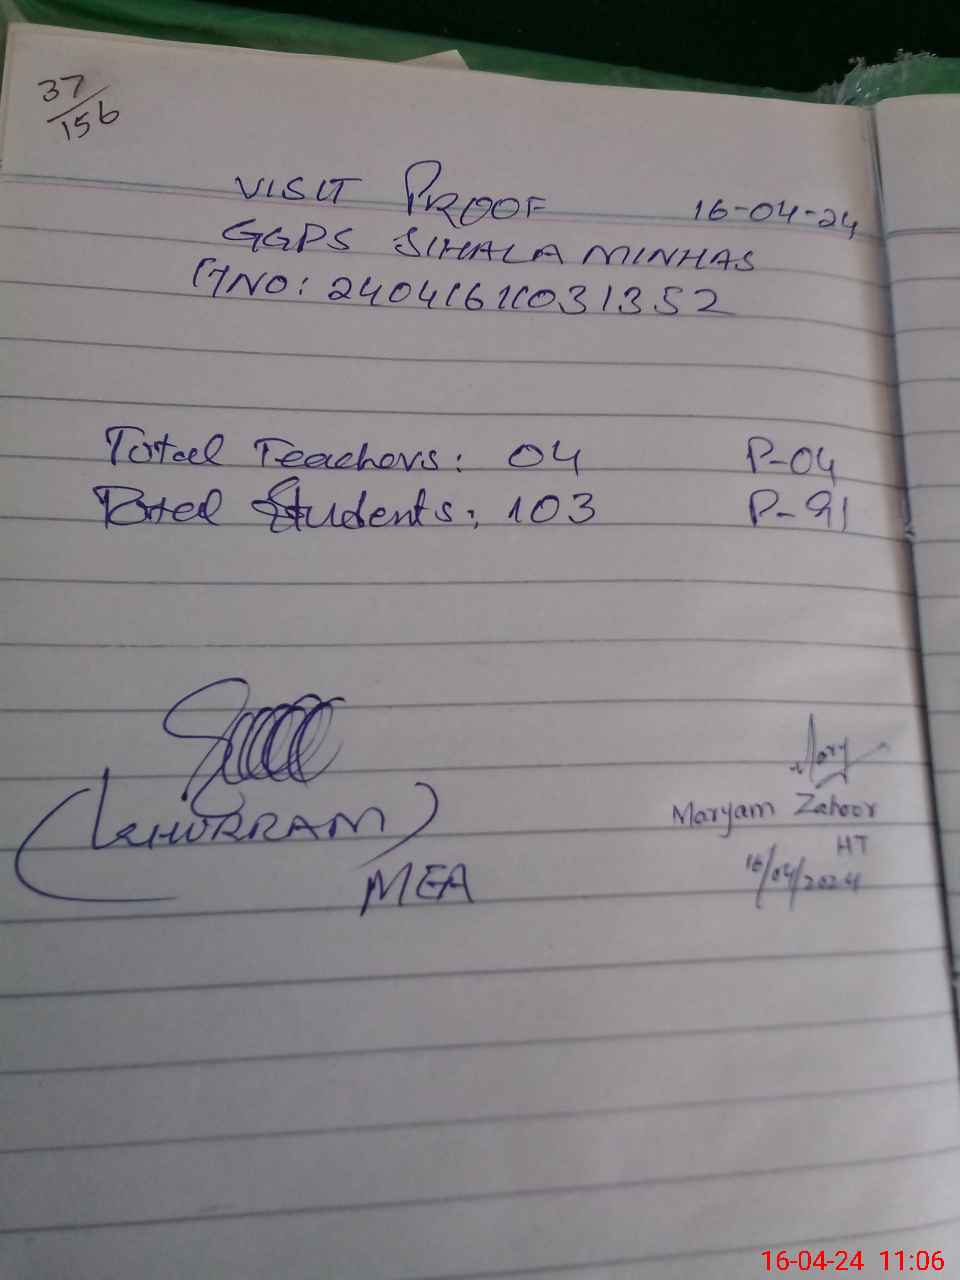 37/156
VISIT PROOF 16-04-24
GGPS SIHALA MINHAS
NO: 24041611031352
Total Teachers: 04 P-04
Total Students: 103 P-91
(KHURRAM)
MEA
Maryam Zahoor
HT
16/04/2024
16-04-24 11:06